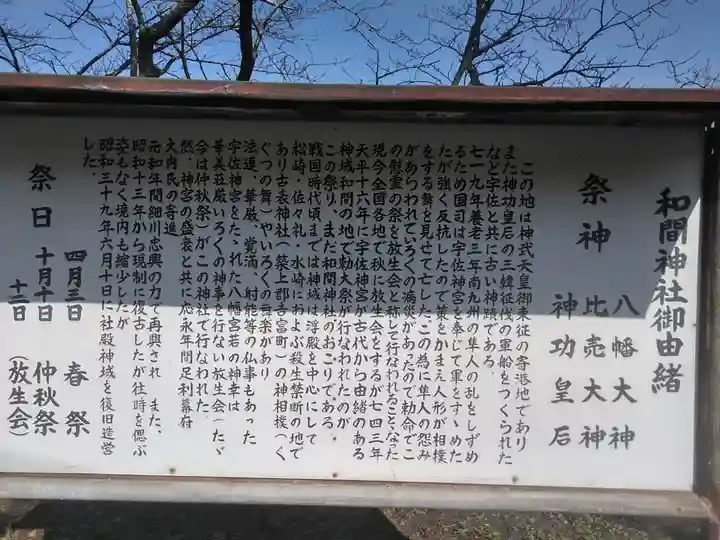 和間神社御由緒
祭神 八幡大神
比売大神
神功皇后
この地は神武天皇御東征の寄港地であり
また神功皇后の三韓征伐の軍船をつくられた
など宇佐と共に古い神蹟である。
七一九年養老三年南九州の隼人の乱をしずめ
るため国司は宇佐神宮を奉じて軍をすゝめた
たが強く反抗したので策をかまえ人形が相撲
をする舞を見せて亡した。この為に隼人の怨み
があらわれていろくの病災があったので勅命でこ
の慰霊の祭を放生会と称して行なわれることなった
現今全国各地で秋に放生会をするが七四三年
天平十六年に宇佐神宮が古代から由緒のある
神域和間の地で勅大祭が行なわれたのが
この祭り、まだ和間神社のおこりである。
戦国時代頃までは神域は浮殿を中心にして
松崎・佐々礼・水崎におよぶ殺生禁断の地で
あり古表神社(築上郡吉富町)の神相撲(く
ぐつの舞)やいろくの音楽があり
法蓮、華厳、覚満、射能等の仏事もあった
宇佐神宮をたゝれた八幡宮若の神幸は
華美荘厳いろくの神事を行ない放生会(たゞ
今は仲秋祭)がこの神社で行なわれた。
然、神宮の盛衰と共に応永年間足利幕府
大内氏の寄進
元和年間細川忠興の力で再興され また、
昭和十三年から現制に復古したが往時を偲ぶ
姿もなく境内も縮少したが
昭和三十九年六月十日に社殿神域を復旧造営
した。
祭日 四月三日 春祭
十月十日 仲秋祭
十二日 (放生会)